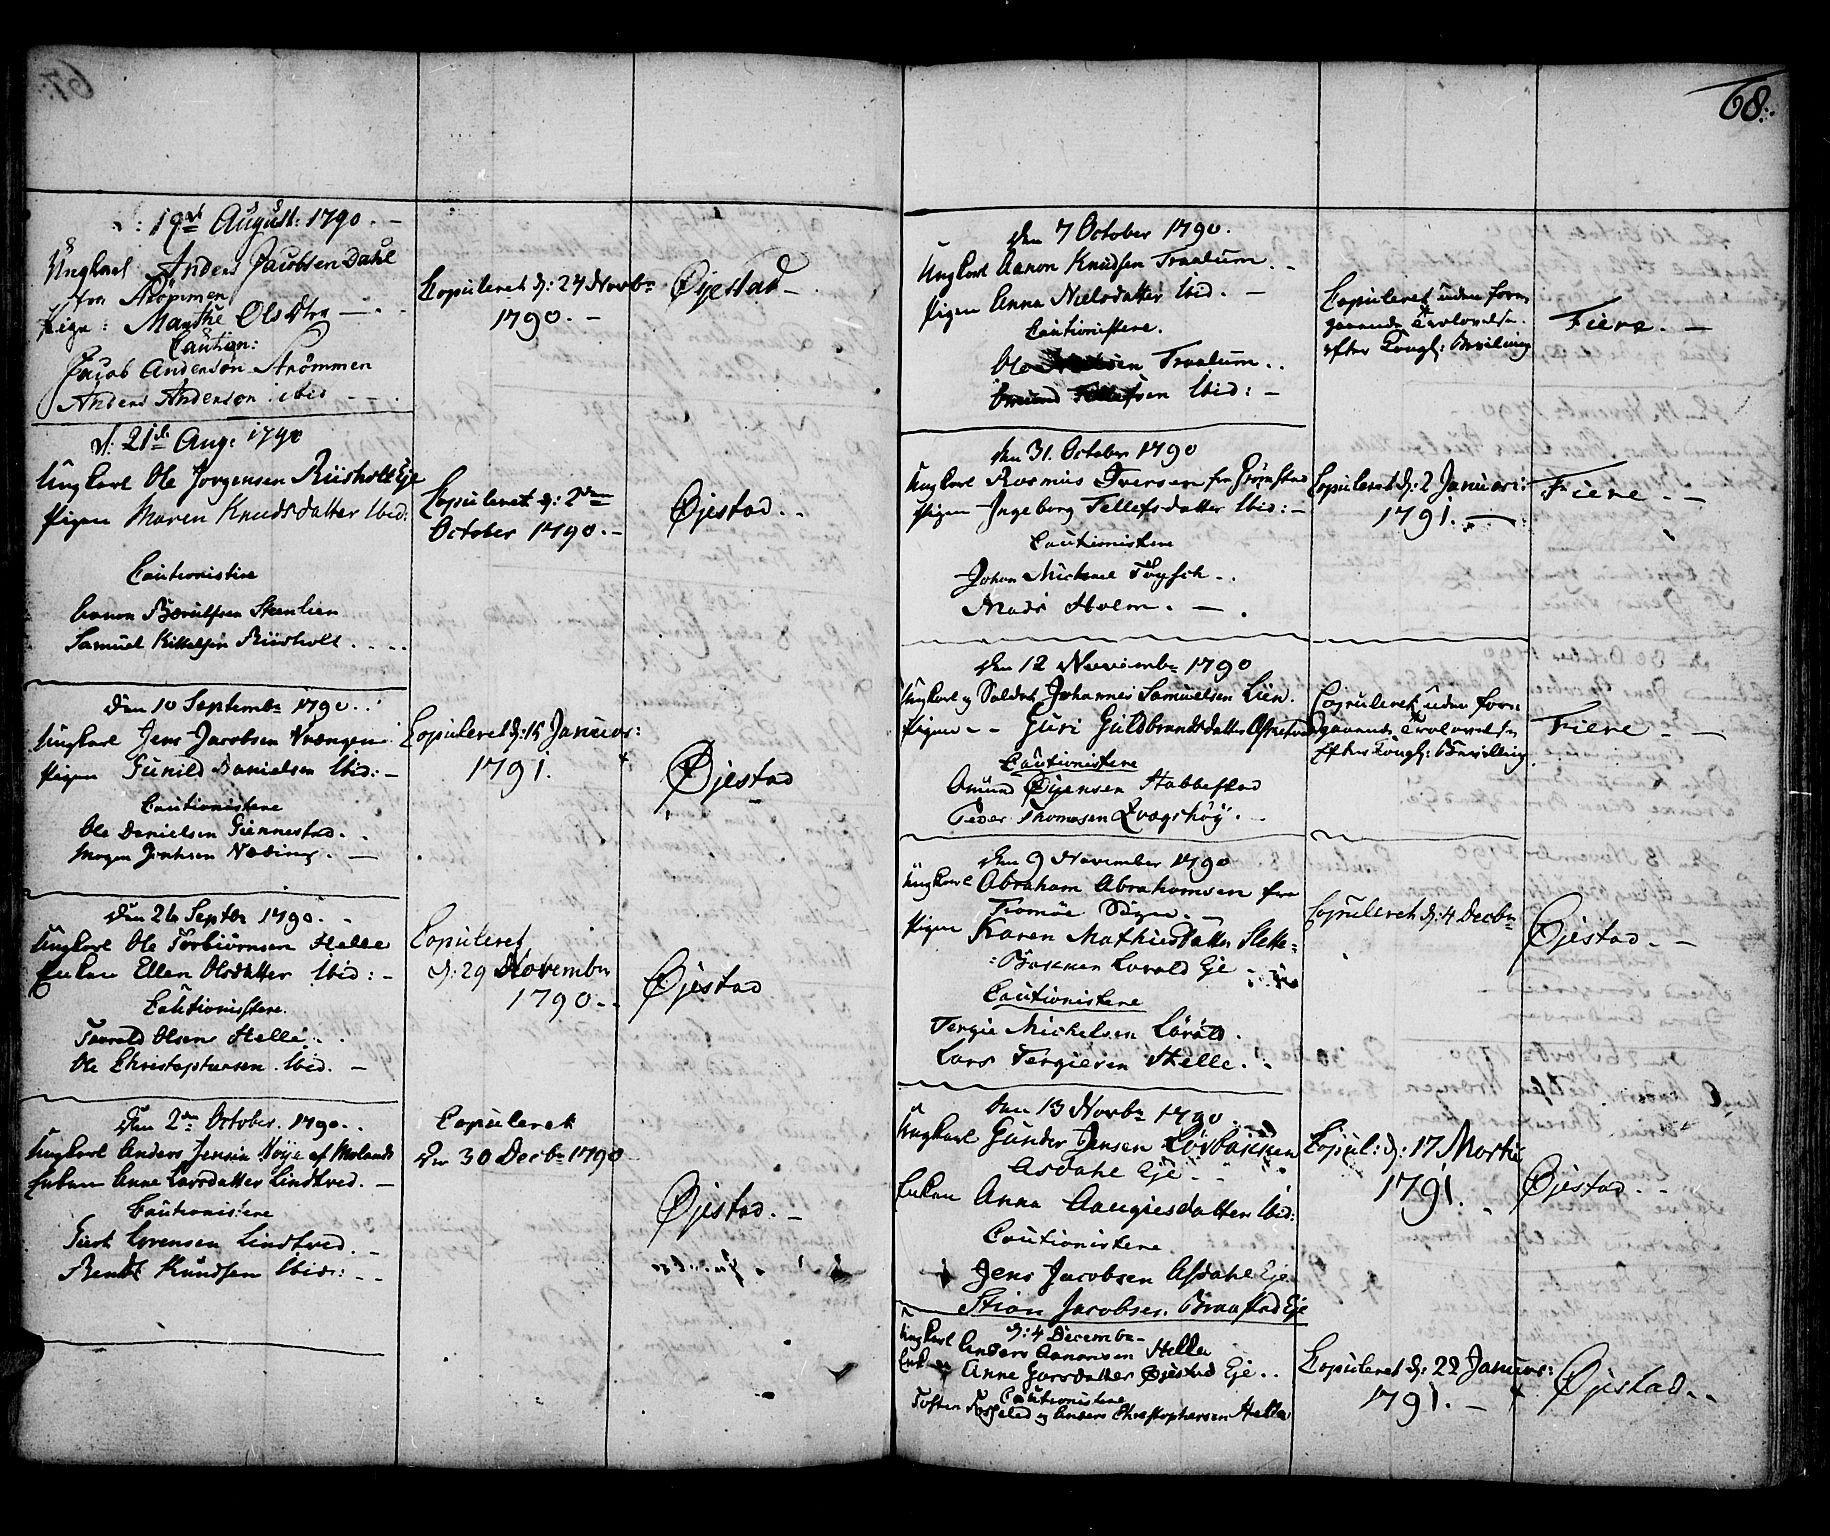 d: 19de August: 1790. –
Ungkarl Anders Jacobsen Dahl
fra Strömmen
Pige: Marthe Ols Dtr
Caution:
Jacob Anderson Strømmen
Anders Anderson ibid
Copuleret d: 24 Novbr
1790. –
Øjestad –
d. 21de Aug: 1790
Ungkarl Ole Jorgensen Riisholt Eje
Pigen Maren Knudsdatter Ibid:
Cautionister
Aanon Steenlien
Samuel Kittelsen Riisholt
Copuleret d: 2den
October 1790. –
Øjestad. .
Den 10 Septembr 1790. .
Ungkarl Jens Jacobsen Vrængen
Pigen Gunild Danielsen Ibid: –
Cautionistere
Ole Danielsen Giennestad. .
Mogen Jenssen
Copuleret d: 15 Januar:
1791.
Øjestad
Den 26 Septbr 1790. .
Ungkarl Ole Torbiörnsen Helle
Enken Ellen Olsdatter Ibid: –
Cautionistere.
Taarald Olsen Helle. .
Ole Christophersen Ibid. –
Copuleret
d: 29 November
1790. .
Øjestad
Den 2den October. 1790. .
Ungkarl Anders Jensen Høye af Molands
Enken Anne Larsdatter Lindtved. –
Cautionistere
Sörensen Lindtved. –
Bendt Knudsen Ibid: –
Copuleret
den 30 Decbr 1790
Øjestad. –
68.
Den 7 October 1790.
Ungkarl Aanon Knudsen Traalum. .
Pigen Anna Nielsdatter Ibid. –
Cautionistere.
Ole Traalum. .
Tellefsen Ibid: –
Copuleret uden fore
gaaende Trolovelse
efter Kongl: Bevilning
Fiere. –
Den 31. October 1790
Ungkarl Rasmus Iversen fra Grömstad
Pigen Ingeborg Tellefsdatter Ibid: –
Cautionistere
Johan Michael
Mads Holm. –
Copuleret d: 2 Januari:
1791. –
Fiere. –
Den 12 Novembr 1790
Ungkarl og Soldat Johannes Samuelsen Lien.
Pigen – – Guri Guldbrandsdatter
Cautionistere
Amund Øyensen Stabbestad
Peder Thomasen Qvagshöy. –
Copuleret uden fore
gaaende Trolovelse
Efter Kongl: Bevilling
Fiere –
Den 9 November 1790
Ungkarl Abraham Abrahamsen fra
Tromöe Sogn. –
Pigen Karen Mathiesdatter Slette-
-Bakken Lovold Eje –
Cautionistere
Tergie Michelsen Løvold.
Lars Tergiesen Helle. .
Copuleret d: 4 Decbr
Øjestad. –
Den 13 Novbr 1790.
Ungkarl Gunder Jensen Lörbakken
Asdahl Eje. –
Enken Anna Aangiesdatter Ibid:
Cautionistere
Jens Jacobsen Asdahl Eje
Stian Jacobsen. Braastad Eje
Copul: d: 17 Martii
1791.
Øjestad. .
d: 4 Decembr
Ungkarl Anders Aanonsen Helle
Enken Anne Garsdatter Øjestad Eje. .
Cautionistere
Tosten og Anders Christophersen Helle
Copuleret d: 22 Januar:
1791. –
Øjestad. .